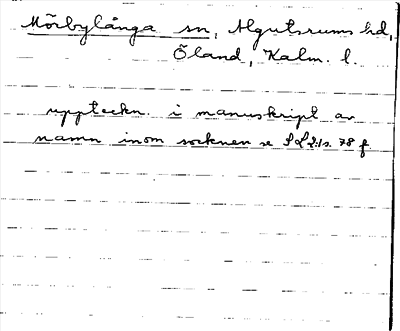 Mörbylånga sn, Algutsrums hd,
Öland, Kalm. l.
uppteckn. i manuskript av
namn inom socknen se SL 2:1 s. 78 f.